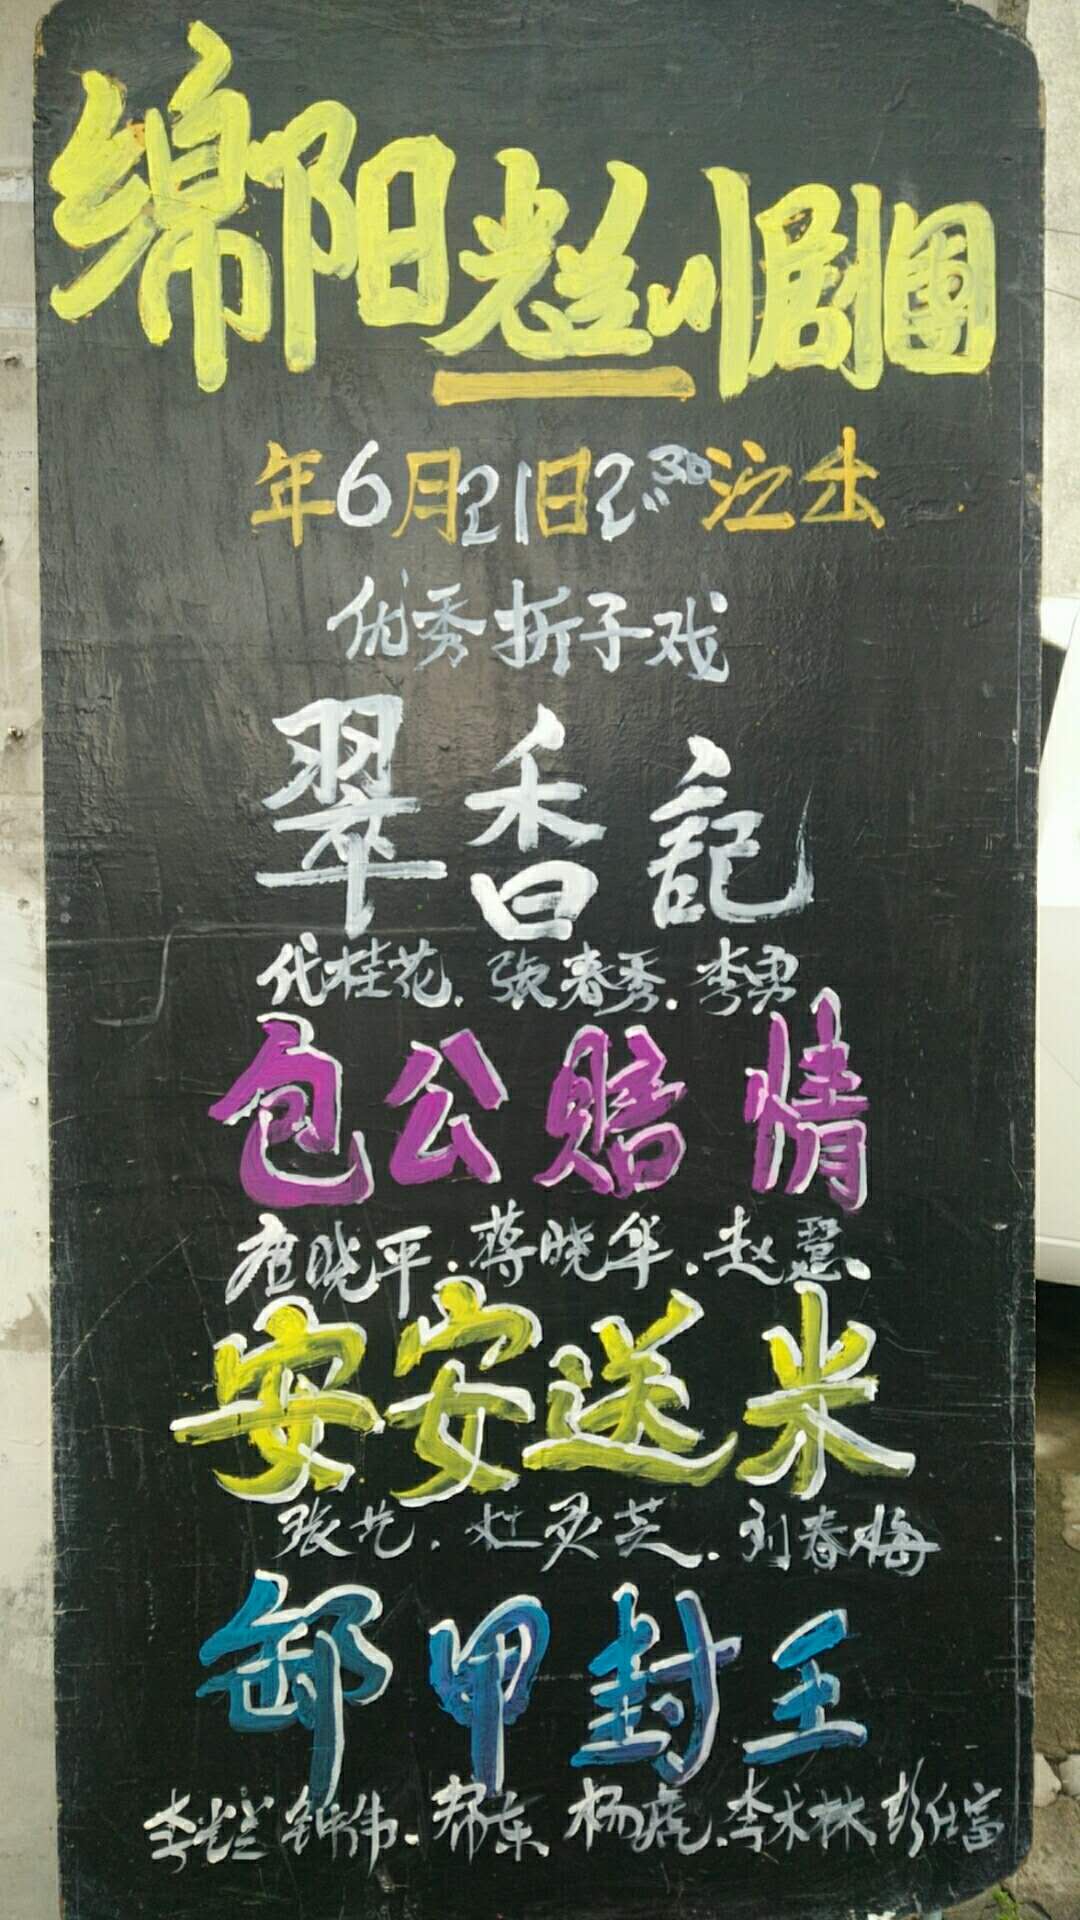 绵阳光兰川剧團
年6月21日2:30演出
优秀折子戏
翠香記
代桂花.张春秀.李勇
包公赔情
唐晓平.蒋晓华.赵慧
安安送米
张艺.杜灵芝.刘春梅
卸甲封王
李光兰 钟伟.郑东 杨虎.李术林 彭仕富